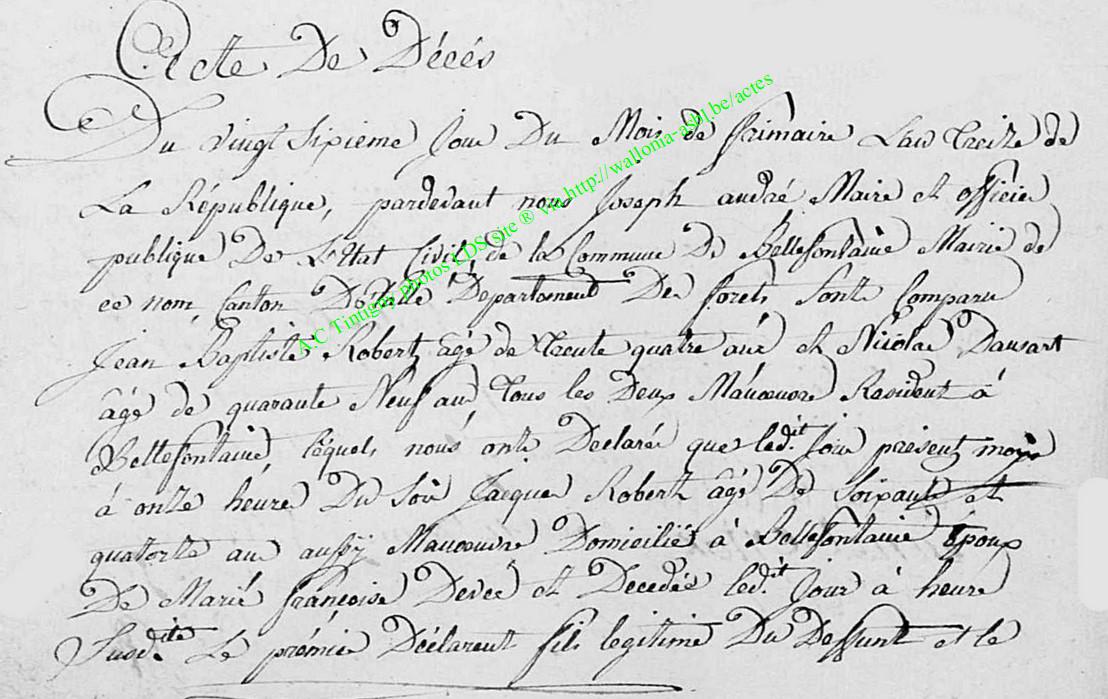 Acte De Décés
Du vingt Sixieme Jour Du Mois de frimaire Lan treize de
La République, pardevant nous Joseph andré Maire et officié
publique De L'Etat Civil, de la Commune De Bellefontaine Mairie de
ce nom, Canton D'Etalle Departement Des forets, Sont Comparu
Jean Baptiste Robert âgé de trente quatre ans et Nicolas Dausart
âgé de quarante Neuf ans tous les Deux Manœuvre Resident à
Bellefontaine, léquels nous ont Declarés que ledit Jour présent mois
à onze heure Du Soir Jacque Robert âgé De Soixante et
quatorze ans aussÿ Manœuvre Domiciliés à Bellefontaine Epoux
De Marie françoise Devée et Decedés ledit Jour à heure
Susdite Le prémier Déclarant fils legitime Du Deffunt et le
A.C Tintigny photos LDS site ® via http://wallonia-asbl.be/actes